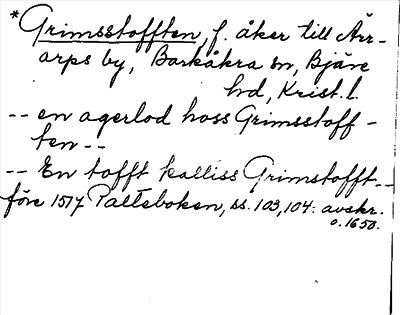 *Grimsstofften, f. åker till Ärr-
arps by, Barkåkra sn, Bjäre
hd, Krist. l.
-- en agerlod hoss Grimsstoff-
ten --
-- En tofft kalliss Grimstofft --
före 1517 Palteboken, ss. 103, 104: avskr.
o. 1650.